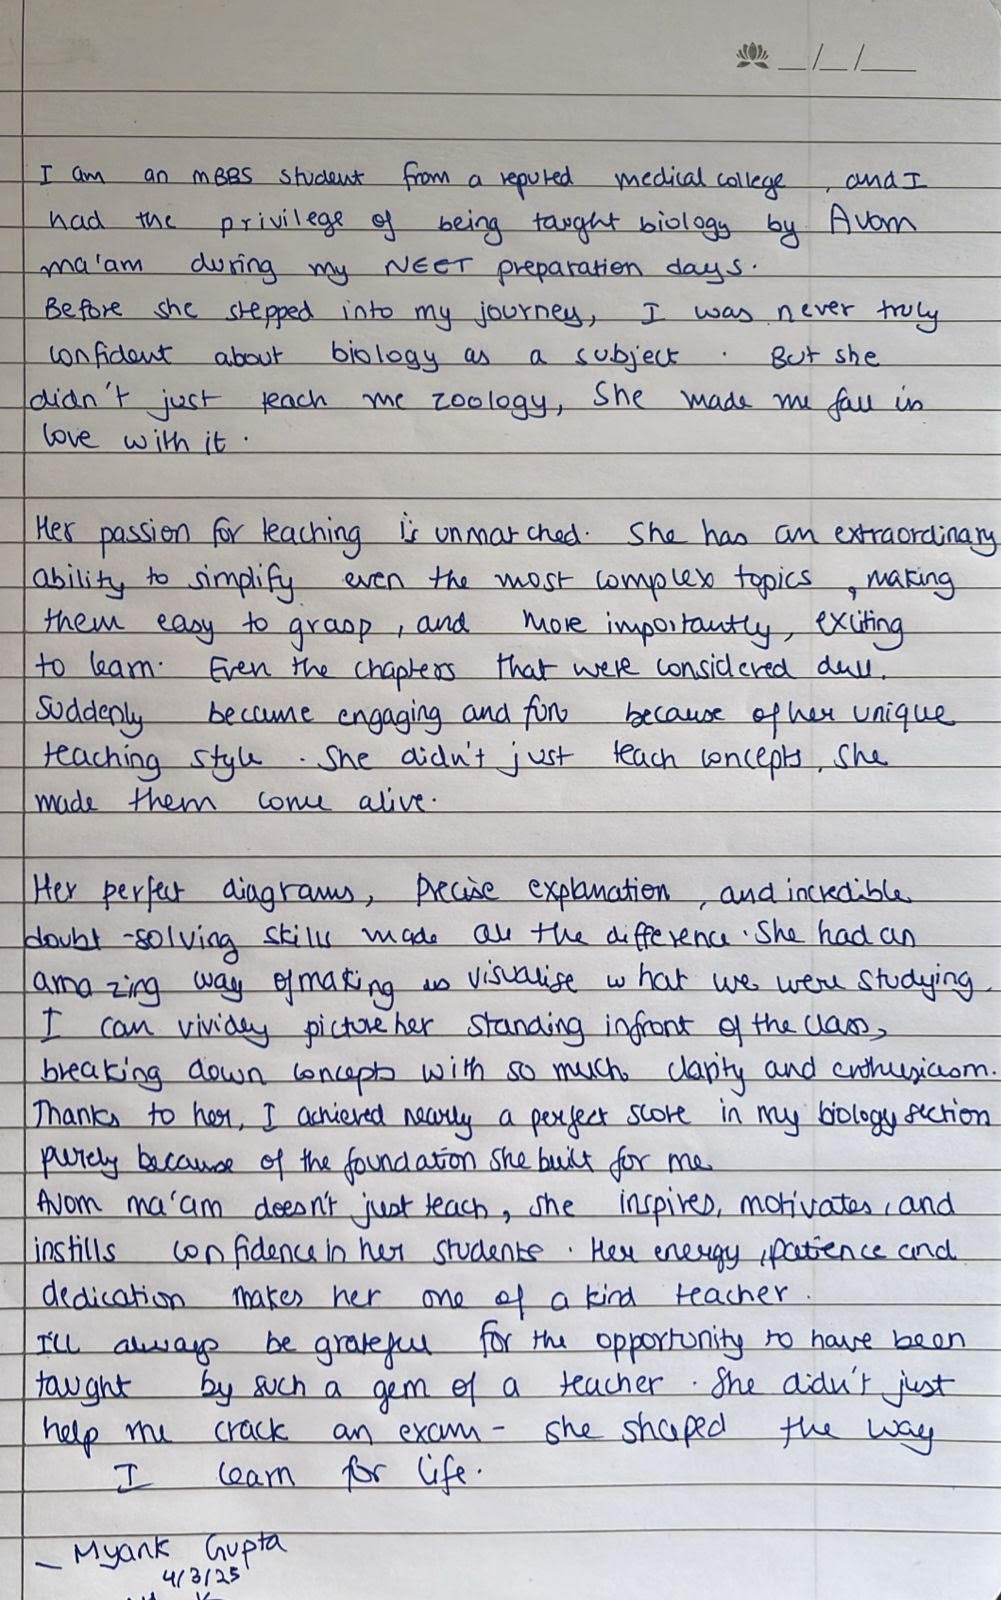 __/__/____
I am an MBBS student from a reputed medical college , and I
had the privilege of being taught biology by Avom
ma'am during my NEET preparation days.
Before she stepped into my journey, I was never truly
confident about biology as a subject . But she
didn't just teach me zoology, She made me fall in
love with it .
Her passion for teaching is unmatched. She has an extraordinary
ability to simplify even the most complex topics , making
them easy to grasp , and more importantly, exciting
to learn. Even the chapters that were considered dull.
Suddenly became engaging and fun because of her unique
teaching style . She didn't just teach concepts, She
made them come alive.
Her perfect diagrams, precise explanation , and incredible
doubt-solving skills made all the difference. She had an
amazing way of making us visualise what we were studying.
I can vividly picture her standing infront of the class,
breaking down concepts with so much clarity and enthusiasm.
Thanks to her, I achieved nearly a perfect score in my biology section
purely because of the foundation she built for me
Avom ma'am doesn't just teach, she inspires, motivates, and
instills confidence in her students . Her energy , patience and
dedication makes her one of a kind teacher .
I'll always be grateful for the opportunity to have been
taught by such a gem of a teacher . She didn't just
help me crack an exam - she shaped the way
I learn for life.
- Myank Gupta
4/3/25